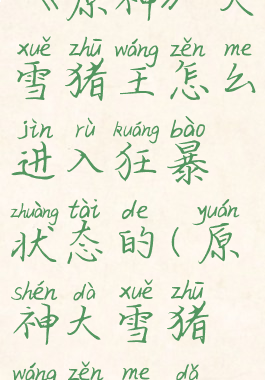 《原神》大
xuě zhū wáng zěn me
雪猪王怎么
jìn rù kuáng bào
进入狂暴
zhuàng tài de yuán
状态的(原
shén dà xuě zhū
神大雪猪
wáng zěn me dǎ